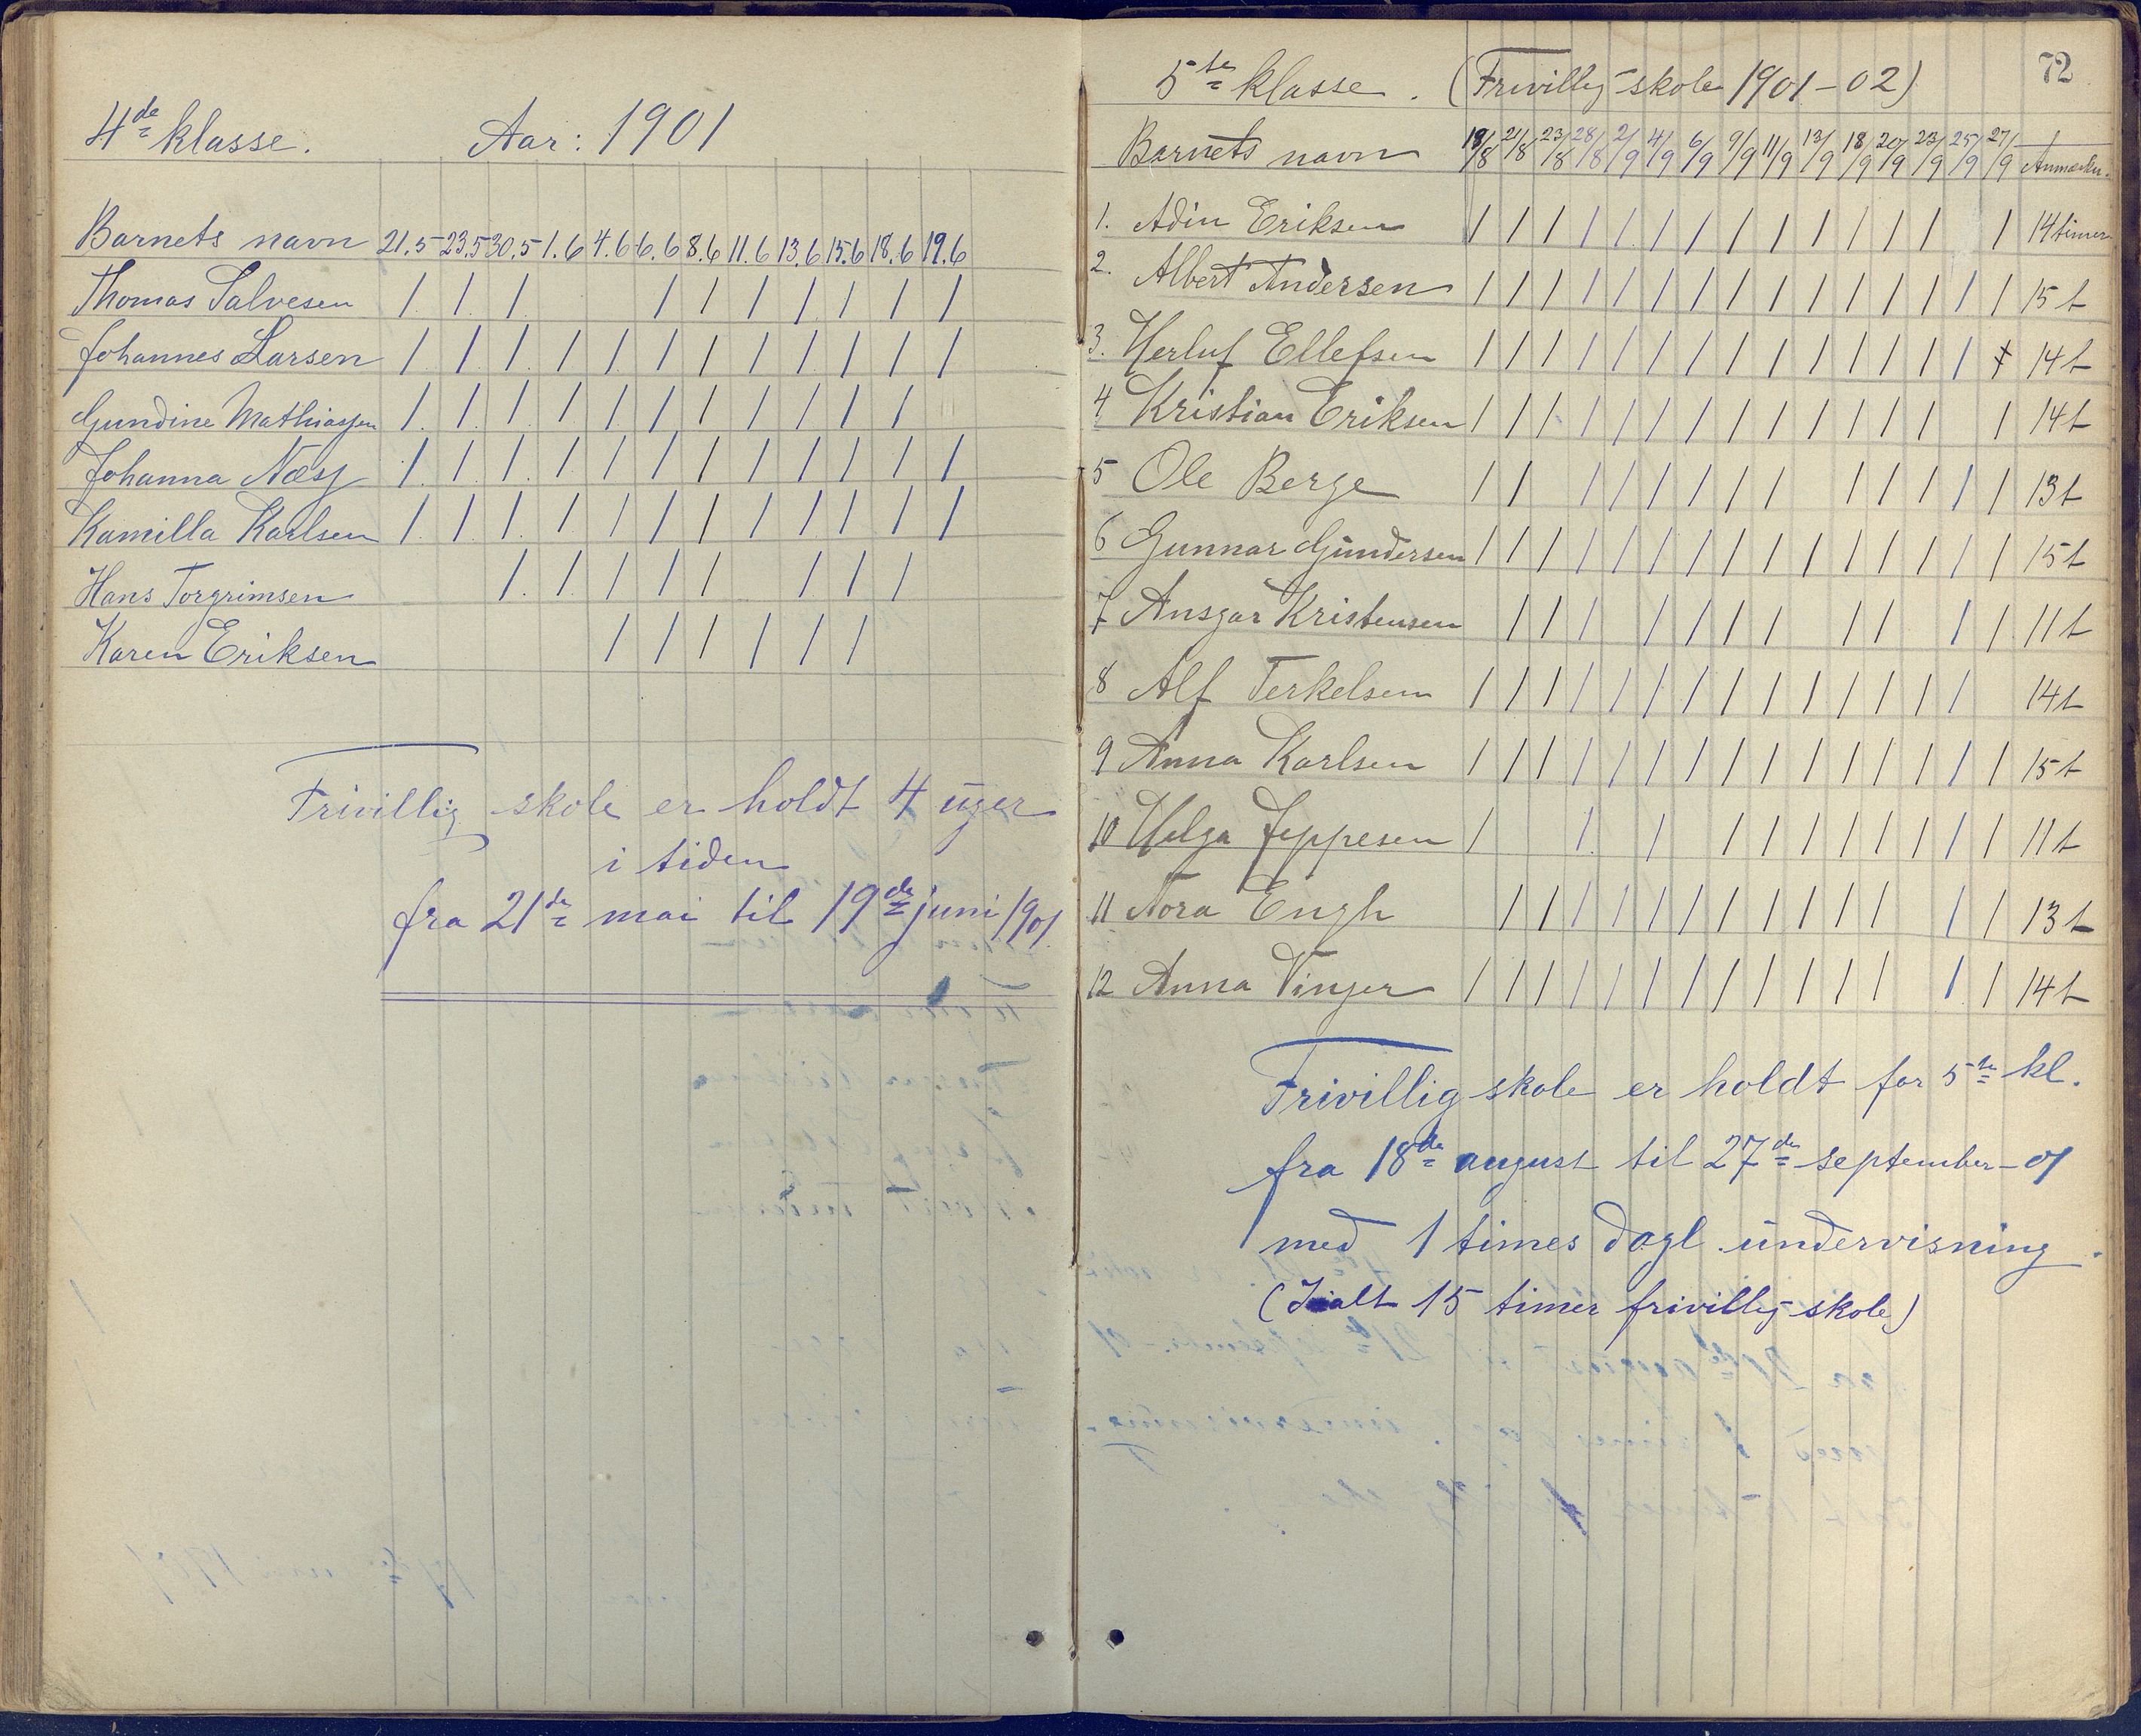 4de klasse. Aar: 1901
Barnets navn 21.5 23.5 30.5 1.6 4.6 6.6 8.6 11.6 13.6 15.6 18.6 19.6
Thomas Salvesen / / / / / / / / / /
Johannes Larsen / / / / / / / / / / / /
Gundine Mathiassen / / / / / / / / / / /
Johanna Næss / / / / / / / / / / / /
Kamilla Karlsen / / / / / / / / / / / /
Hans Torgrimsen / / / / / / / /
Karen Eriksen / / / / / /
Frivillig skole er holdt 4 uger
i tiden
fra 21de mai til 19de juni 1901.
72
5te klasse. (Frivillig skole 1901-02)
Barnets navn 19/8 21/8 23/8 28/8 2/9 4/9 6/9 9/9 11/9 13/9 18/9 20/9 23/9 25/9 27/9 Anmærkn.
1. Adin Eriksen / / / / / / / / / / / / / / 14 timer
2. Albert Andersen / / / / / / / / / / / / / / / 15 t
3. Herluf Ellefsen / / / / / / / / / / / / / / 14 t
4 Kristian Eriksen / / / / / / / / / / / / / / 14 t
5 Ole Berge / / / / / / / / / / / / / 13 t
6 Gunnar Gundersen / / / / / / / / / / / / / / / 15 t
7 Ansgar Kristensen / / / / / / / / / / / 11 t
8 Alf Terkelsen / / / / / / / / / / / / / / 14 t
9 Anna Karlsen / / / / / / / / / / / / / / / 15 t
10 Helga Jeppesen / / / / / / / / / / / 11 t
11 Nora Engh / / / / / / / / / / / / / 13 t
12 Anna Vinger / / / / / / / / / / / / / / 14 t
Frivillig skole er holdt for 5te kl.
fra 18de august til 27de september - 01
med 1 times dagl. undervisning.
(Ialt 15 timer frivillig skole)